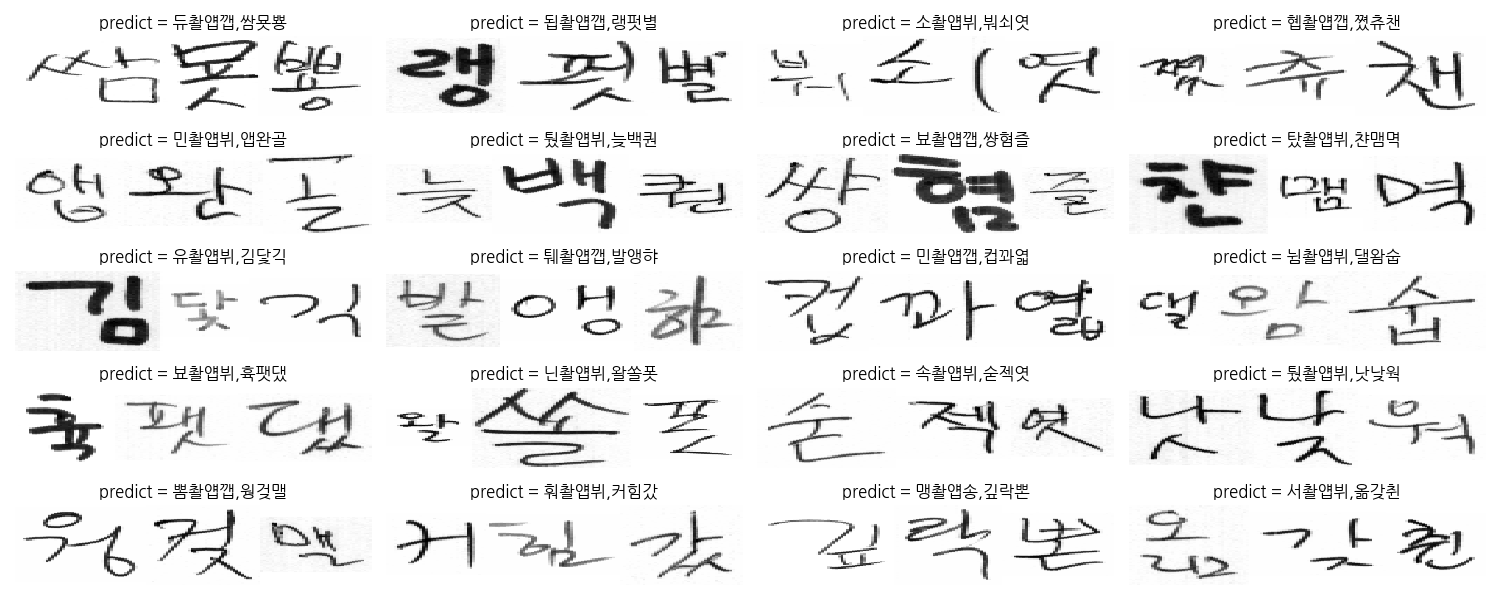 predict = 듀촬얩깹,쌈묫뿅
쌈 묫 뿅
predict = 됩촬얩깹,랭펏별
랭 펏 별
predict = 소촬얩뷔,붜쇠엿
붜 쇠 엿
predict = 헵촬얩깹,쪘츄챈
츄 챈
predict = 민촬얩뷔,앱완골
앱 완 골
predict = 퉜촬얩뷔,늦백퀀
늦 백 퀀
predict = 뵤촬얩깹,썅혐즐
썅 혐 즐
predict = 탔촬얩뷔,챤맴멱
챤 맴 멱
predict = 유촬얩뷔,김닻긱
김 닻 긱
predict = 퉤촬얩깹,발앵햐
발 앵
predict = 민촬얩깹,컵꽈엷
컵 꽈 엷
predict = 뉨촬얩뷔,댈왐숩
댈 왐 숩
predict = 뵤촬얩뷔,휵팻댔
휵 팻 댔
predict = 닌촬얩뷔,왈쏠풋
왈 쏠 풋
predict = 속촬얩뷔,숟젝엿
숟 젝 엿
predict = 퉜촬얩뷔,낫낮웍
낫 낮 워
predict = 뽐촬얩깹,웡겆맬
웡 컺
predict = 훠촬얩뷔,커힘값
커 힘 값
predict = 맹촬얩송,깊락뽄
깊 락 뽄
predict = 서촬얩뷔,옮갖췬
옮 갖 췬